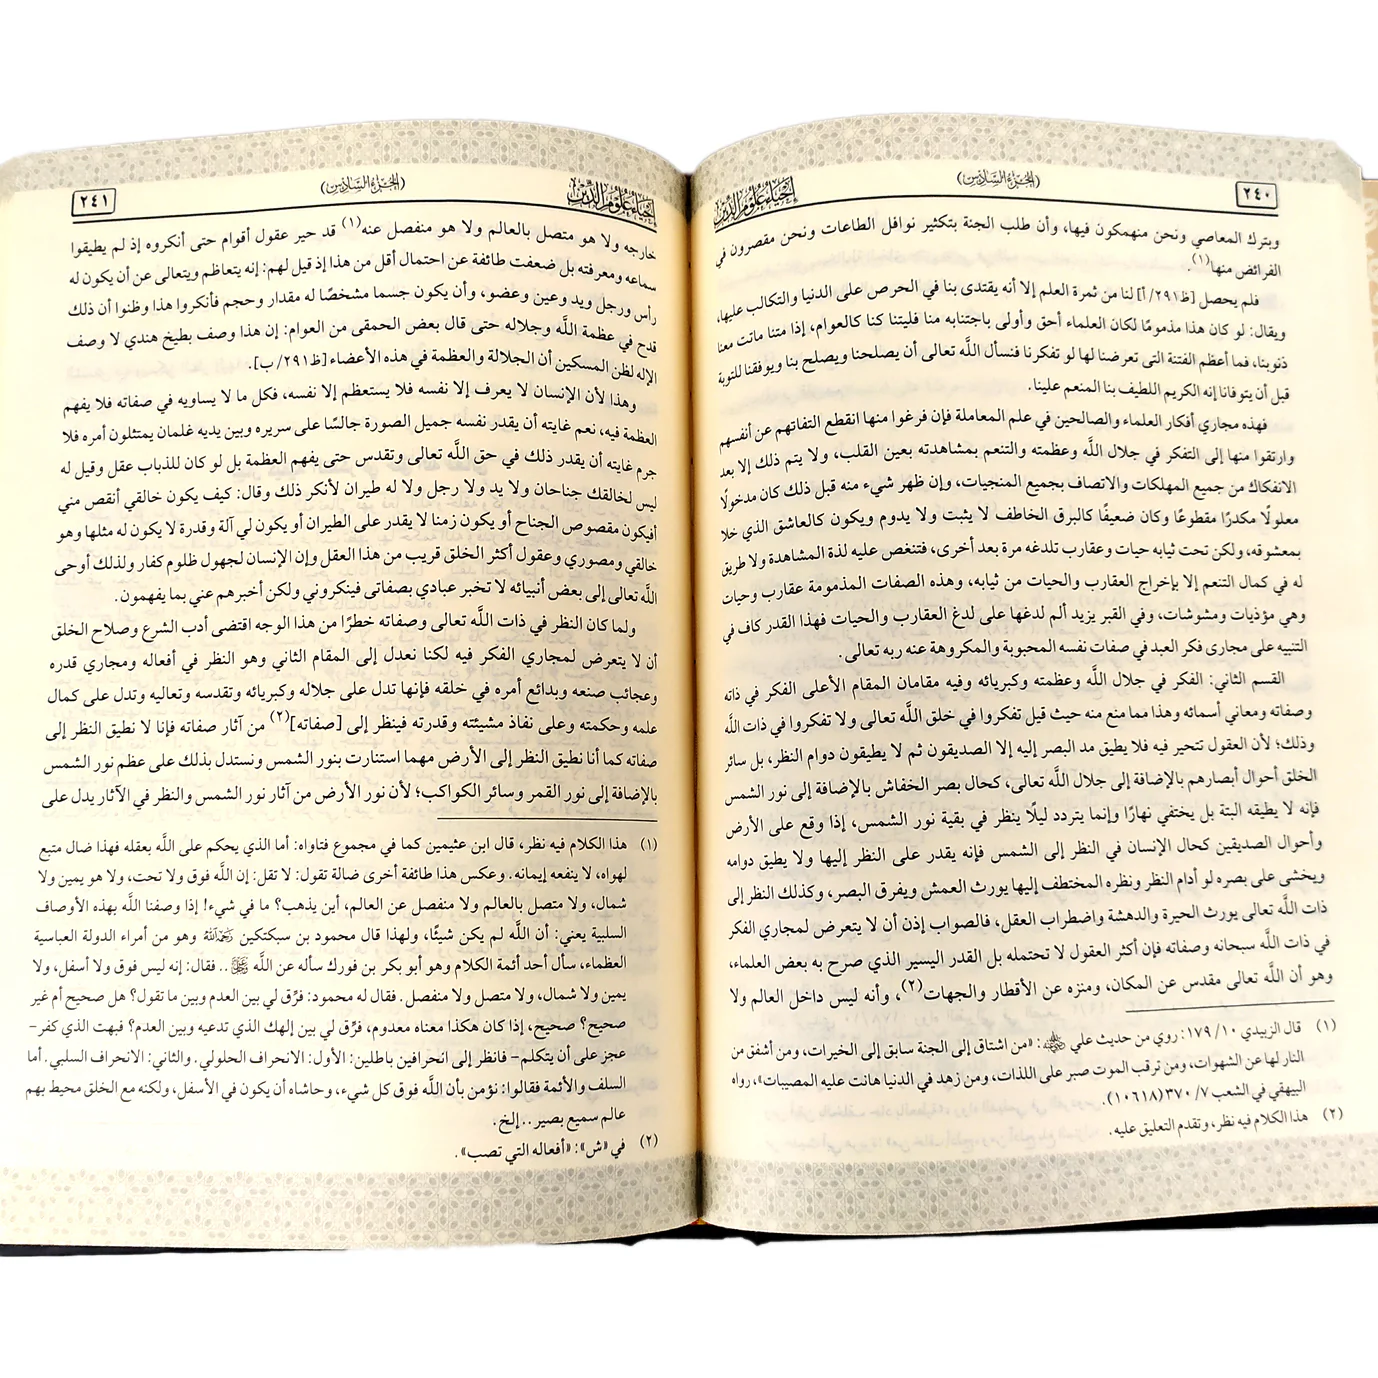 ٢٤٠
(الجزء السادس)
إحياء علوم الدين
ويترك المعاصي ونحن منهمكون فيها، وأن طلب الجنة بتكثير نوافل الطاعات ونحن مقصرون في
الفرائض منها(١).
فلم يحصل [ظ٢٩١/ أ] لنا من ثمرة العلم إلا أنه يقتدى بنا في الحرص على الدنيا والتكالب عليها،
ويقال: لو كان هذا مذمومًا لكان العلماء أحق وأولى باجتنابه منا فليتنا كنا كالعوام، إذا متنا ماتت معنا
ذنوبنا، فما أعظم الفتنة التى تعرضنا لها لو تفكرنا فنسأل اللَّه تعالى أن يصلحنا ويصلح بنا ويوفقنا للتوبة
قبل أن يتوفانا إنه الكريم اللطيف بنا المنعم علينا.
فهذه مجاري أفكار العلماء والصالحين في علم المعاملة فإن فرغوا منها انقطع التفاتهم عن أنفسهم
وارتقوا منها إلى التفكر في جلال اللَّه وعظمته والتنعم بمشاهدته بعين القلب، ولا يتم ذلك إلا بعد
الانفكاك من جميع المهلكات والاتصاف بجميع المنجيات، وإن ظهر شيء منه قبل ذلك كان مدخولًا
معلولًا مكدرًا مقطوعًا وكان ضعيفًا كالبرق الخاطف لا يثبت ولا يدوم ويكون كالعاشق الذي خلا
بمعشوقه، ولكن تحت ثيابه حيات وعقارب تلدغه مرة بعد أخرى، فتنغص عليه لذة المشاهدة ولا طريق
له في كمال التنعم إلا بإخراج العقارب والحيات من ثيابه، وهذه الصفات المذمومة عقارب وحيات
وهي مؤذيات ومشوشات، وفي القبر يزيد ألم لدغها على لدغ العقارب والحيات فهذا القدر كاف في
التنبيه على مجارى فكر العبد في صفات نفسه المحبوبة والمكروهة عنه ربه تعالى.
القسم الثاني: الفكر في جلال اللَّه وعظمته وكبريائه وفيه مقامان المقام الأعلى الفكر في ذاته
وصفاته ومعاني أسمائه وهذا مما منع منه حيث قيل تفكروا في خلق اللَّه تعالى ولا تفكروا في ذات اللَّه
وذلك؛ لأن العقول تتحير فيه فلا يطيق مد البصر إليه إلا الصديقون ثم لا يطيقون دوام النظر، بل سائر
الخلق أحوال أبصارهم بالإضافة إلى جلال اللَّه تعالى، كحال بصر الخفاش بالإضافة إلى نور الشمس
فإنه لا يطيقه البتة بل يختفي نهارًا وإنما يتردد ليلًا ينظر في بقية نور الشمس، إذا وقع على الأرض
وأحوال الصديقين كحال الإنسان في النظر إلى الشمس فإنه يقدر على النظر إليها ولا يطيق دوامه
ويخشى على بصره لو أدام النظر ونظره المختطف إليها يورث العمش ويفرق البصر، وكذلك النظر إلى
ذات اللَّه تعالى يورث الحيرة والدهشة واضطراب العقل، فالصواب إذن أن لا يتعرض لمجاري الفكر
في ذات اللَّه سبحانه وصفاته فإن أكثر العقول لا تحتمله بل القدر اليسير الذي صرح به بعض العلماء،
وهو أن اللَّه تعالى مقدس عن المكان، ومنزه عن الأقطار والجهات(٢)، وأنه ليس داخل العالم ولا
(١) قال الزبيدي ١٠/ ١٧٩: روي من حديث علي رضي الله عنه: «من اشتاق إلى الجنة سابق إلى الخيرات، ومن أشفق من
النار لها عن الشهوات، ومن ترقب الموت صبر على اللذات، ومن زهد في الدنيا هانت عليه المصيبات»، رواه
البيهقي في الشعب ٧/ ٣٧٠(١٠٦١٨).
(٢) هذا الكلام فيه نظر، وتقدم التعليق عليه.
إحياء علوم الدين
(الجزء السادس)
٢٤١
خارجه ولا هو متصل بالعالم ولا هو منفصل عنه(١) قد حير عقول أقوام حتى أنكروه إذ لم يطيقوا
سماعه ومعرفته بل ضعفت طائفة عن احتمال أقل من هذا إذ قيل لهم: إنه يتعاظم ويتعالى عن أن يكون له
رأس ورجل ويد وعين وعضو، وأن يكون جسما مشخصًا له مقدار وحجم فأنكروا هذا وظنوا أن ذلك
قدح في عظمة اللَّه وجلاله حتى قال بعض الحمقى من العوام: إن هذا وصف بطيخ هندي لا وصف
الإله لظن المسكين أن الجلالة والعظمة في هذه الأعضاء [ظ٢٩١/ ب].
وهذا لأن الإنسان لا يعرف إلا نفسه فلا يستعظم إلا نفسه، فكل ما لا يساويه في صفاته فلا يفهم
العظمة فيه، نعم غايته أن يقدر نفسه جميل الصورة جالسًا على سريره وبين يديه غلمان يمتثلون أمره فلا
جرم غايته أن يقدر ذلك في حق اللَّه تعالى وتقدس حتى يفهم العظمة بل لو كان للذباب عقل وقيل له
ليس لخالقك جناحان ولا يد ولا رجل ولا له طيران لأنكر ذلك وقال: كيف يكون خالقي أنقص مني
أفيكون مقصوص الجناح أو يكون زمنا لا يقدر على الطيران أو يكون لي آلة وقدرة لا يكون له مثلها وهو
خالقي ومصوري وعقول أكثر الخلق قريب من هذا العقل وإن الإنسان لجهول ظلوم كفار ولذلك أوحى
اللَّه تعالى إلى بعض أنبيائه لا تخبر عبادي بصفاتى فينكروني ولكن أخبرهم عني بما يفهمون.
ولما كان النظر في ذات اللَّه تعالى وصفاته خطرًا من هذا الوجه اقتضى أدب الشرع وصلاح الخلق
أن لا يتعرض لمجاري الفكر فيه لكنا نعدل إلى المقام الثاني وهو النظر في أفعاله ومجاري قدره
وعجائب صنعه وبدائع أمره في خلقه فإنها تدل على جلاله وكبريائه وتقدسه وتعاليه وتدل على كمال
علمه وحكمته وعلى نفاذ مشيئته وقدرته فينظر إلى [صفاته](٢) من آثار صفاته فإنا لا نطيق النظر إلى
صفاته كما أنا نطيق النظر إلى الأرض مهما استنارت بنور الشمس ونستدل بذلك على عظم نور الشمس
بالإضافة إلى نور القمر وسائر الكواكب؛ لأن نور الأرض من آثار نور الشمس والنظر في الآثار يدل على
(١) هذا الكلام فيه نظر، قال ابن عثيمين كما في مجموع فتاواه: أما الذي يحكم على اللَّه بعقله فهذا ضال متبع
لهواه، لا ينفعه إيمانه. وعكس هذا طائفة أخرى ضالة تقول: لا تقل: إن اللَّه فوق ولا تحت، ولا هو يمين ولا
شمال، ولا متصل بالعالم ولا منفصل عن العالم، أين يذهب؟ ما في شيء! إذا وصفنا اللَّه بهذه الأوصاف
السلبية يعني: أن اللَّه لم يكن شيئًا، ولهذا قال محمود بن سبكتكين رحمه الله وهو من أمراء الدولة العباسية
العظماء، سأل أحد أئمة الكلام وهو أبو بكر بن فورك سأله عن اللَّه ﷻ .. فقال: إنه ليس فوق ولا أسفل، ولا
يمين ولا شمال، ولا متصل ولا منفصل. فقال له محمود: فرِّق لي بين العدم وبين ما تقول؟ هل صحيح أم غير
صحيح؟ صحيح، إذا كان هكذا معناه معدوم، فرِّق لي بين إلهك الذي تدعيه وبين العدم؟ فبهت الذي كفر –
عجز على أن يتكلم– فانظر إلى انحرافين باطلين: الأول: الانحراف الحلولي. والثاني: الانحراف السلبي. أما
السلف والأئمة فقالوا: نؤمن بأن اللَّه فوق كل شيء، وحاشاه أن يكون في الأسفل، ولكنه مع الخلق محيط بهم
عالم سميع بصير .. إلخ.
(٢) في «ش»: «أفعاله التي تصب».